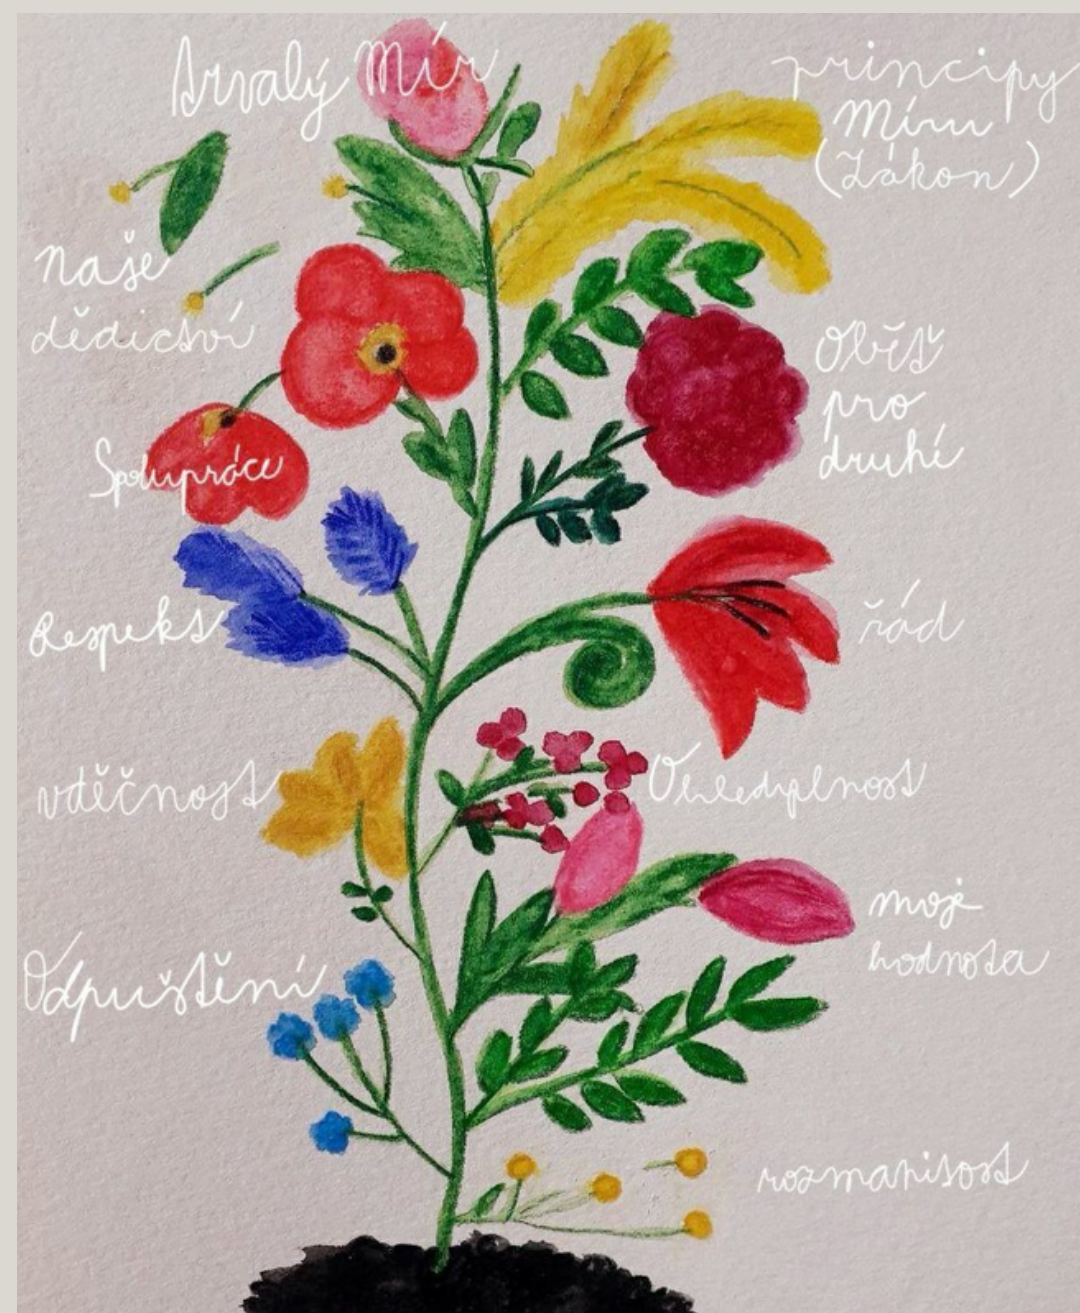 trvalý Mír
principy
Míru
(Zákon)
naše
dědictví
Oběť
pro
druhé
Spolupráce
Respekt
řád
vděčnost
Ohleduplnost
moje
hodnota
Odpuštění
rozmanitost